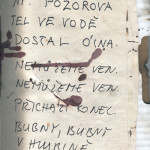 POZOROVA
TEL VE VODĚ
DOSTAL
NEMŮŽEME VEN.
NEMŮŽEME VEN.
PŘICHÁZÍ KONEC.
BUBNY, BUBNY
V HLUBINĚ